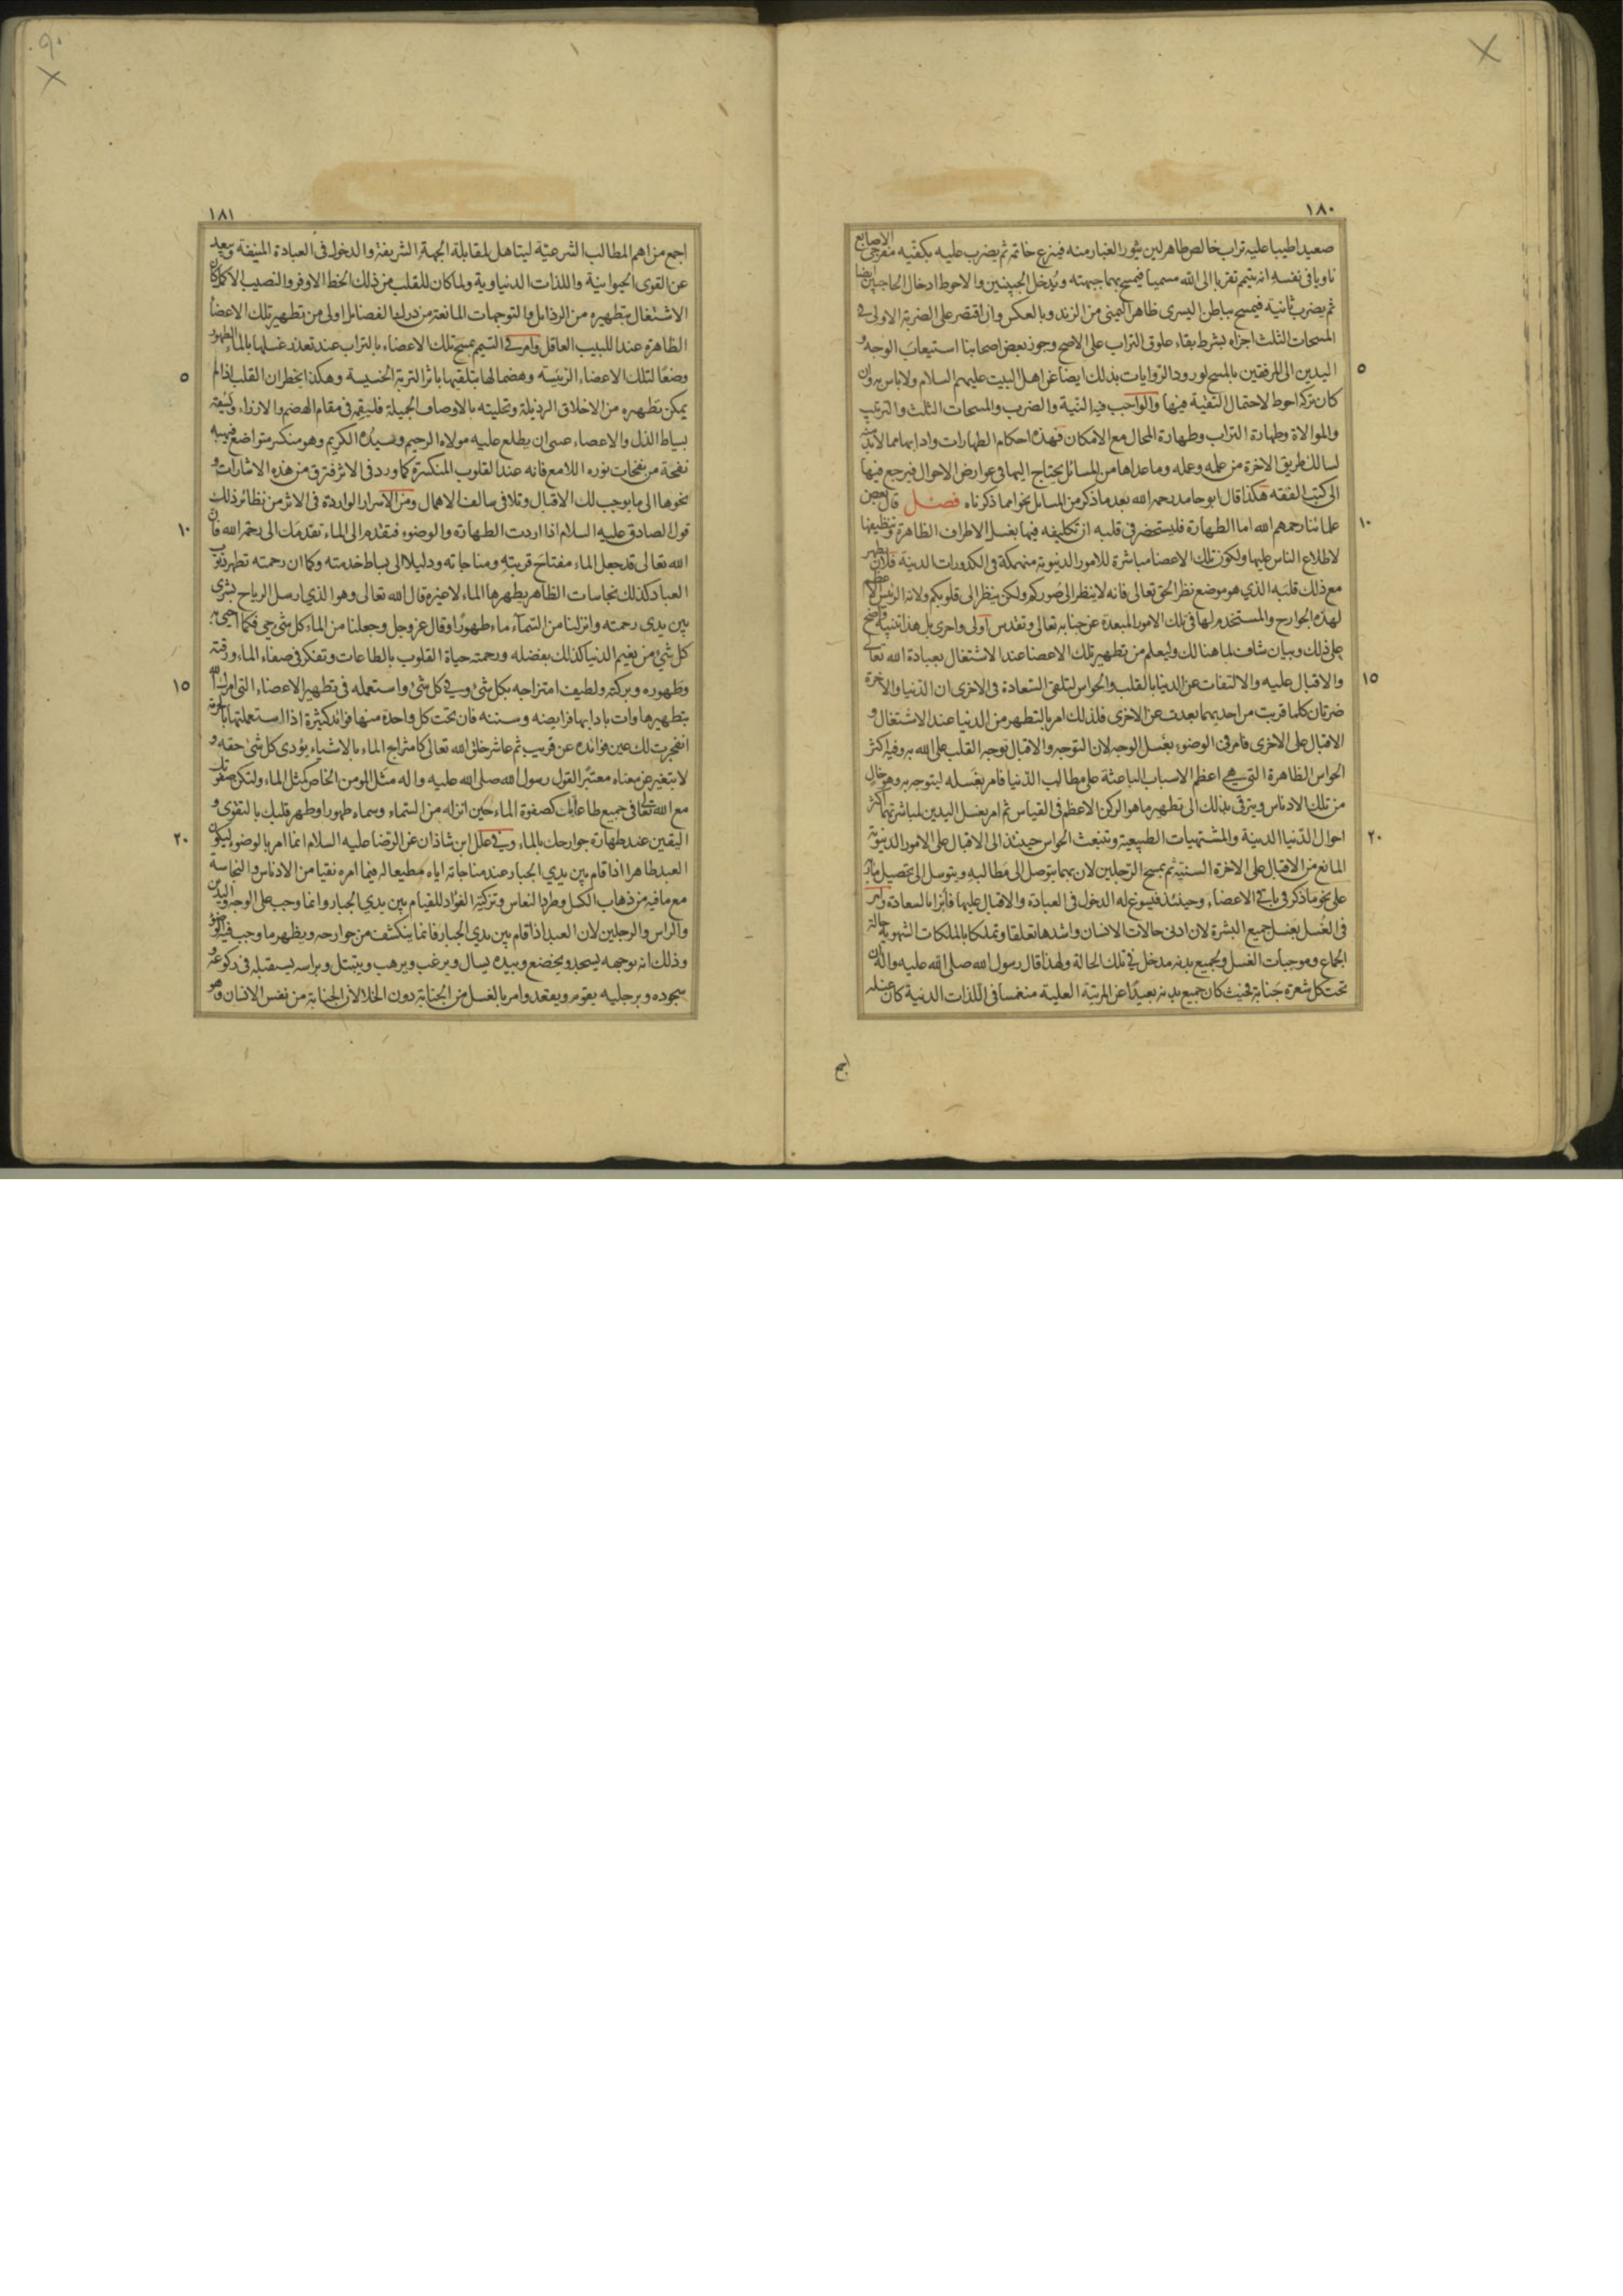 ١٨٠
صعيدا طيبا عليه تراب خالص طاهر لين يثور الغبار منه فينزع خاتمه ثم يضرب عليه بكفيه مفرجى الاصابع
ناويا فى نفسه انه يتيمم تقربا الى الله مسميا فيمسح بهما جبهته ويدخل الجبينين والاحوط ادخال الحاجبين ايضا
ثم يضرب ثانية فيمسح بباطن اليسرى ظاهر اليمنى من الزند وبالعكس وان اقتصر على الضربة الاولى فى
المسحات الثلث اجزاه بشرط بقاء علوق التراب على الاصح وجوز بعض اصحابنا استيعاب الوجه و
٥
اليدين الى المرفقين بالمسح لورود الروايات بذلك ايضا عن اهل البيت عليهم السلام ولا باس به وان
كان تركه احوط لاحتمال التقية فيها والواجب فيه النية والضرب والمسحات الثلث والترتيب
والموالاة وطهارة التراب وطهارة المحال مع الامكان فهذه احكام الطهارات وادابها مما لا بد منه
لسالك طريق الاخرة من علمه وعمله وما عداها من المسائل يحتاج اليها فى عوارض الاحوال فيرجع فيها
الى كتب الفقه هكذا قال ابو حامد رحمه الله بعد ما ذكر من المسايل نحوا مما ذكرناه فصل قال بعض
١٠
علمائنا رحمهم الله اما الطهارة فليستحضر فى قلبه ان تكليفه فيها بغسل الاطراف الظاهرة وتنظيفها
لاطلاع الناس عليها ولكون تلك الاعضا مباشرة للامور الدنيوية منهمكة فى الكدورات الدنية فلان يطهر
مع ذلك قلبه الذي هو موضع نظر الحق تعالى فانه لا ينظر الى صوركم ولكن ينظر الى قلوبكم ولانه الرئيس الاعظم
لهذه الجوارح والمستخدم لها فى تلك الامور المبعدة عن جنابه تعالى وتقدس اولى واحرى بل هذا تنبيه واضح
على ذلك وبيان شاف لما هنالك وليعلم من تطهير تلك الاعضا عند الاشتغال بعبادة الله تعالى
١٥
والاقبال عليه والالتفات عن الدنيا بالقلب والحواس لتلقى السعادة فى الاخرى ان الدنيا والاخرة
ضرتان كلما قربت من احديهما بعدت عن الاخرى فلذلك امر بالتطهر من الدنيا عند الاشتغال و
الاقبال على الاخرى فامر فى الوضوء بغسل الوجه لان التوجه والاقبال بوجه القلب على الله به وفيه اكثر
الحواس الظاهرة التي هي اعظم الاسباب الباعثة على مطالب الدنيا فامر بغسله ليتوجه به وهو خال
من تلك الادناس ويترقى بذلك الى تطهير ما هو الركن الاعظم فى القياس ثم امر بغسل اليدين لمباشرتهما اكثر
٢٠
احوال الدنيا الدنية والمشتهيات الطبيعية وتنبعث الحواس حينئذ الى الاقبال على الامور الدنيوية
المانع من الاقبال على الاخرة السنية ثم بمسح الرجلين لان بهما يتوصل الى مطالبه ويتوسل الى تحصيل ماربه
على نحو ما ذكر فى باقي الاعضاء وحينئذ فيسوغ له الدخول فى العبادة والاقبال عليها فائزا بالسعادة وامر
فى الغسل بغسل جميع البشرة لان ادنى حالات الانسان واشدها تعلقا وتملكا بالملكات الشهوية حالة
الجماع وموجبات الغسل ولجميع بدنه مدخل في تلك الحالة ولهذا قال رسول الله صلى الله عليه واله ان
تحت كل شعرة جنابة فحيث كان جميع بدنه بعيدا عن المرتبة العلية منغمسا فى اللذات الدنية كان غسله
١٨١
اجمع من اهم المطالب الشرعية ليتاهل لمقابلة الجهة الشريفة والدخول فى العبادة المنيفة ويبعد
عن القوى الحيوانية واللذات الدنياوية ولما كان للقلب من ذلك الحظ الاوفر والنصيب الاكمل كان
الاشتغال بتطهيره من الرذايل والتوجهات المانعة من درك الفضائل اولى من تطهير تلك الاعضا
الظاهرة عند اللبيب العاقل وامر في التيمم بمسح تلك الاعضاء بالتراب عند تعذر غسلها بالماء الطهور
٥
وضعا لتلك الاعضاء الرئيسة وهضما لها بتلقيها باثر التربة الخسيسة وهكذا يخطر ان القلب اذا لم
يمكن تطهيره من الاخلاق الرذيلة وتحليته بالاوصاف الجميلة فليقمه فى مقام الهضم والازراء
بسياط الذل والاعضاء عسى ان يطلع عليه مولاه الرحيم وسيده الكريم وهو منكسر متواضع فيهبه
نفحة من نفحات نوره اللامع فانه عند القلوب المنكسرة كما ورد فى الاثر فترق من هذه الاشارات و
نحوها الى ما يوجب لك الاقبال وتلافى سالف الاهمال ومن الاسرار الواردة فى الاثر من نظائر ذلك
١٠
قول الصادق عليه السلام اذا اردت الطهارة والوضوء فتقدم الى الماء تقدمك الى رحمة الله فان
الله تعالى قد جعل الماء مفتاح قربته ومناجاته ودليلا الى بساط خدمته وكما ان رحمته تطهر ذنوب
العباد كذلك نجاسات الظاهر يطهرها الماء لا غيره قال الله تعالى وهو الذي ارسل الرياح بشرى
بين يدى رحمته وانزلنا من السمآء ماء طهورا وقال عز وجل وجعلنا من الماء كل شئ حي فكما احيى به
كل شئ من نعيم الدنيا كذلك بفضله ورحمته حياة القلوب بالطاعات وتفكر فى صفاء الماء ورقته
١٥
وطهوره وبركته ولطيف امتزاجه بكل شئ وفي كل شئ واستعمله فى تطهير الاعضاء التى امرك الله
بتطهيرها وات بادابها فرايضه وسننه فان تحت كل واحدة منها فوائد كثيرة اذا استعملتها بالحرمة
انفجرت لك عين فوائده عن قريب ثم عاشر خلق الله تعالى كامتزاج الماء بالاشياء يؤدى كل شئ حقه و
لا يتغير عن معناه معتبرا لقول رسول الله صلى الله عليه واله مثل المومن الخاص كمثل الماء ولتكن صفوتك
مع الله تعالى فى جميع طاعاتك كصفوة الماء حين انزله من السماء وسماه طهورا وطهر قلبك بالتقوى و
٢٠
اليقين عند طهارة جوارحك بالماء وفي علل ابن شاذان عن الرضا عليه السلام انما امر بالوضوء ليكون
العبد طاهرا اذا قام بين يدي الجبار عند مناجاته اياه مطيعا له فيما امره نقيا من الادناس والنجاسة
مع ما فيه من ذهاب الكسل وطرد النعاس وتزكية الفؤاد للقيام بين يدي الجبار وانما وجب على الوجه واليدين
والراس والرجلين لان العبد اذا قام بين يدي الجبار فانما ينكشف من جوارحه ويظهر ما وجب فيه الوضوء
وذلك انه بوجهه يسجد ويخضع وبيده يسال ويرغب ويرهب ويتبتل وبراسه يستقبله فى ركوعه و
سجوده وبرجليه يقوم ويقعد وامر بالغسل من الجنابة دون الخلا لان الجنابة من نفس الانسان وهو